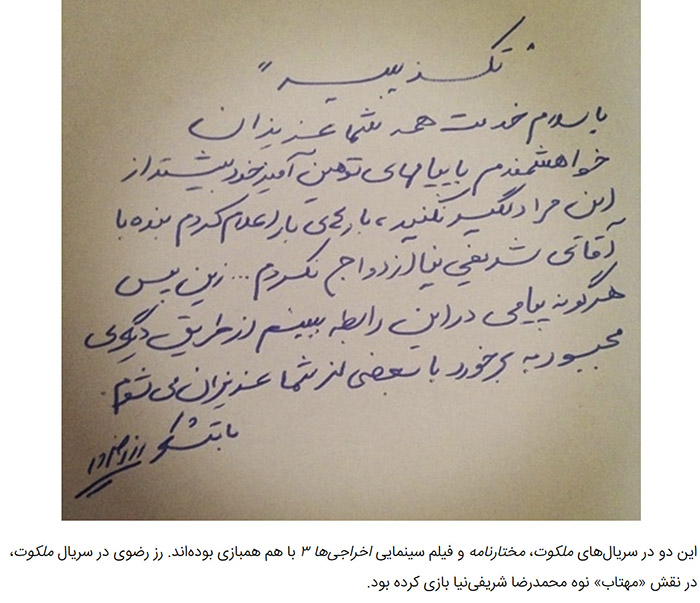 " تکذیبیه "
با سلام خدمت همه شما عزیزان
خواهشمندم با پیامهای توهین آمیز خود بیشتر از
این مرا دلگیر نکنید، بارها اعلام کردم بنده با
آقای شریفی نیا ازدواج نکردم ... زین پس
هرگونه پیامی در این رابطه ببینم از طریق دیگری
مجبور به برخورد با بعضی از شما عزیزان می شوم.
با تشکر رز رضوی
این دو در سریال‌های ملکوت، مختارنامه و فیلم سینمایی اخراجی‌ها ۳ با هم همبازی بوده‌اند. رز رضوی در سریال ملکوت،
در نقش «مهتاب» نوه محمدرضا شریفی‌نیا بازی کرده بود.